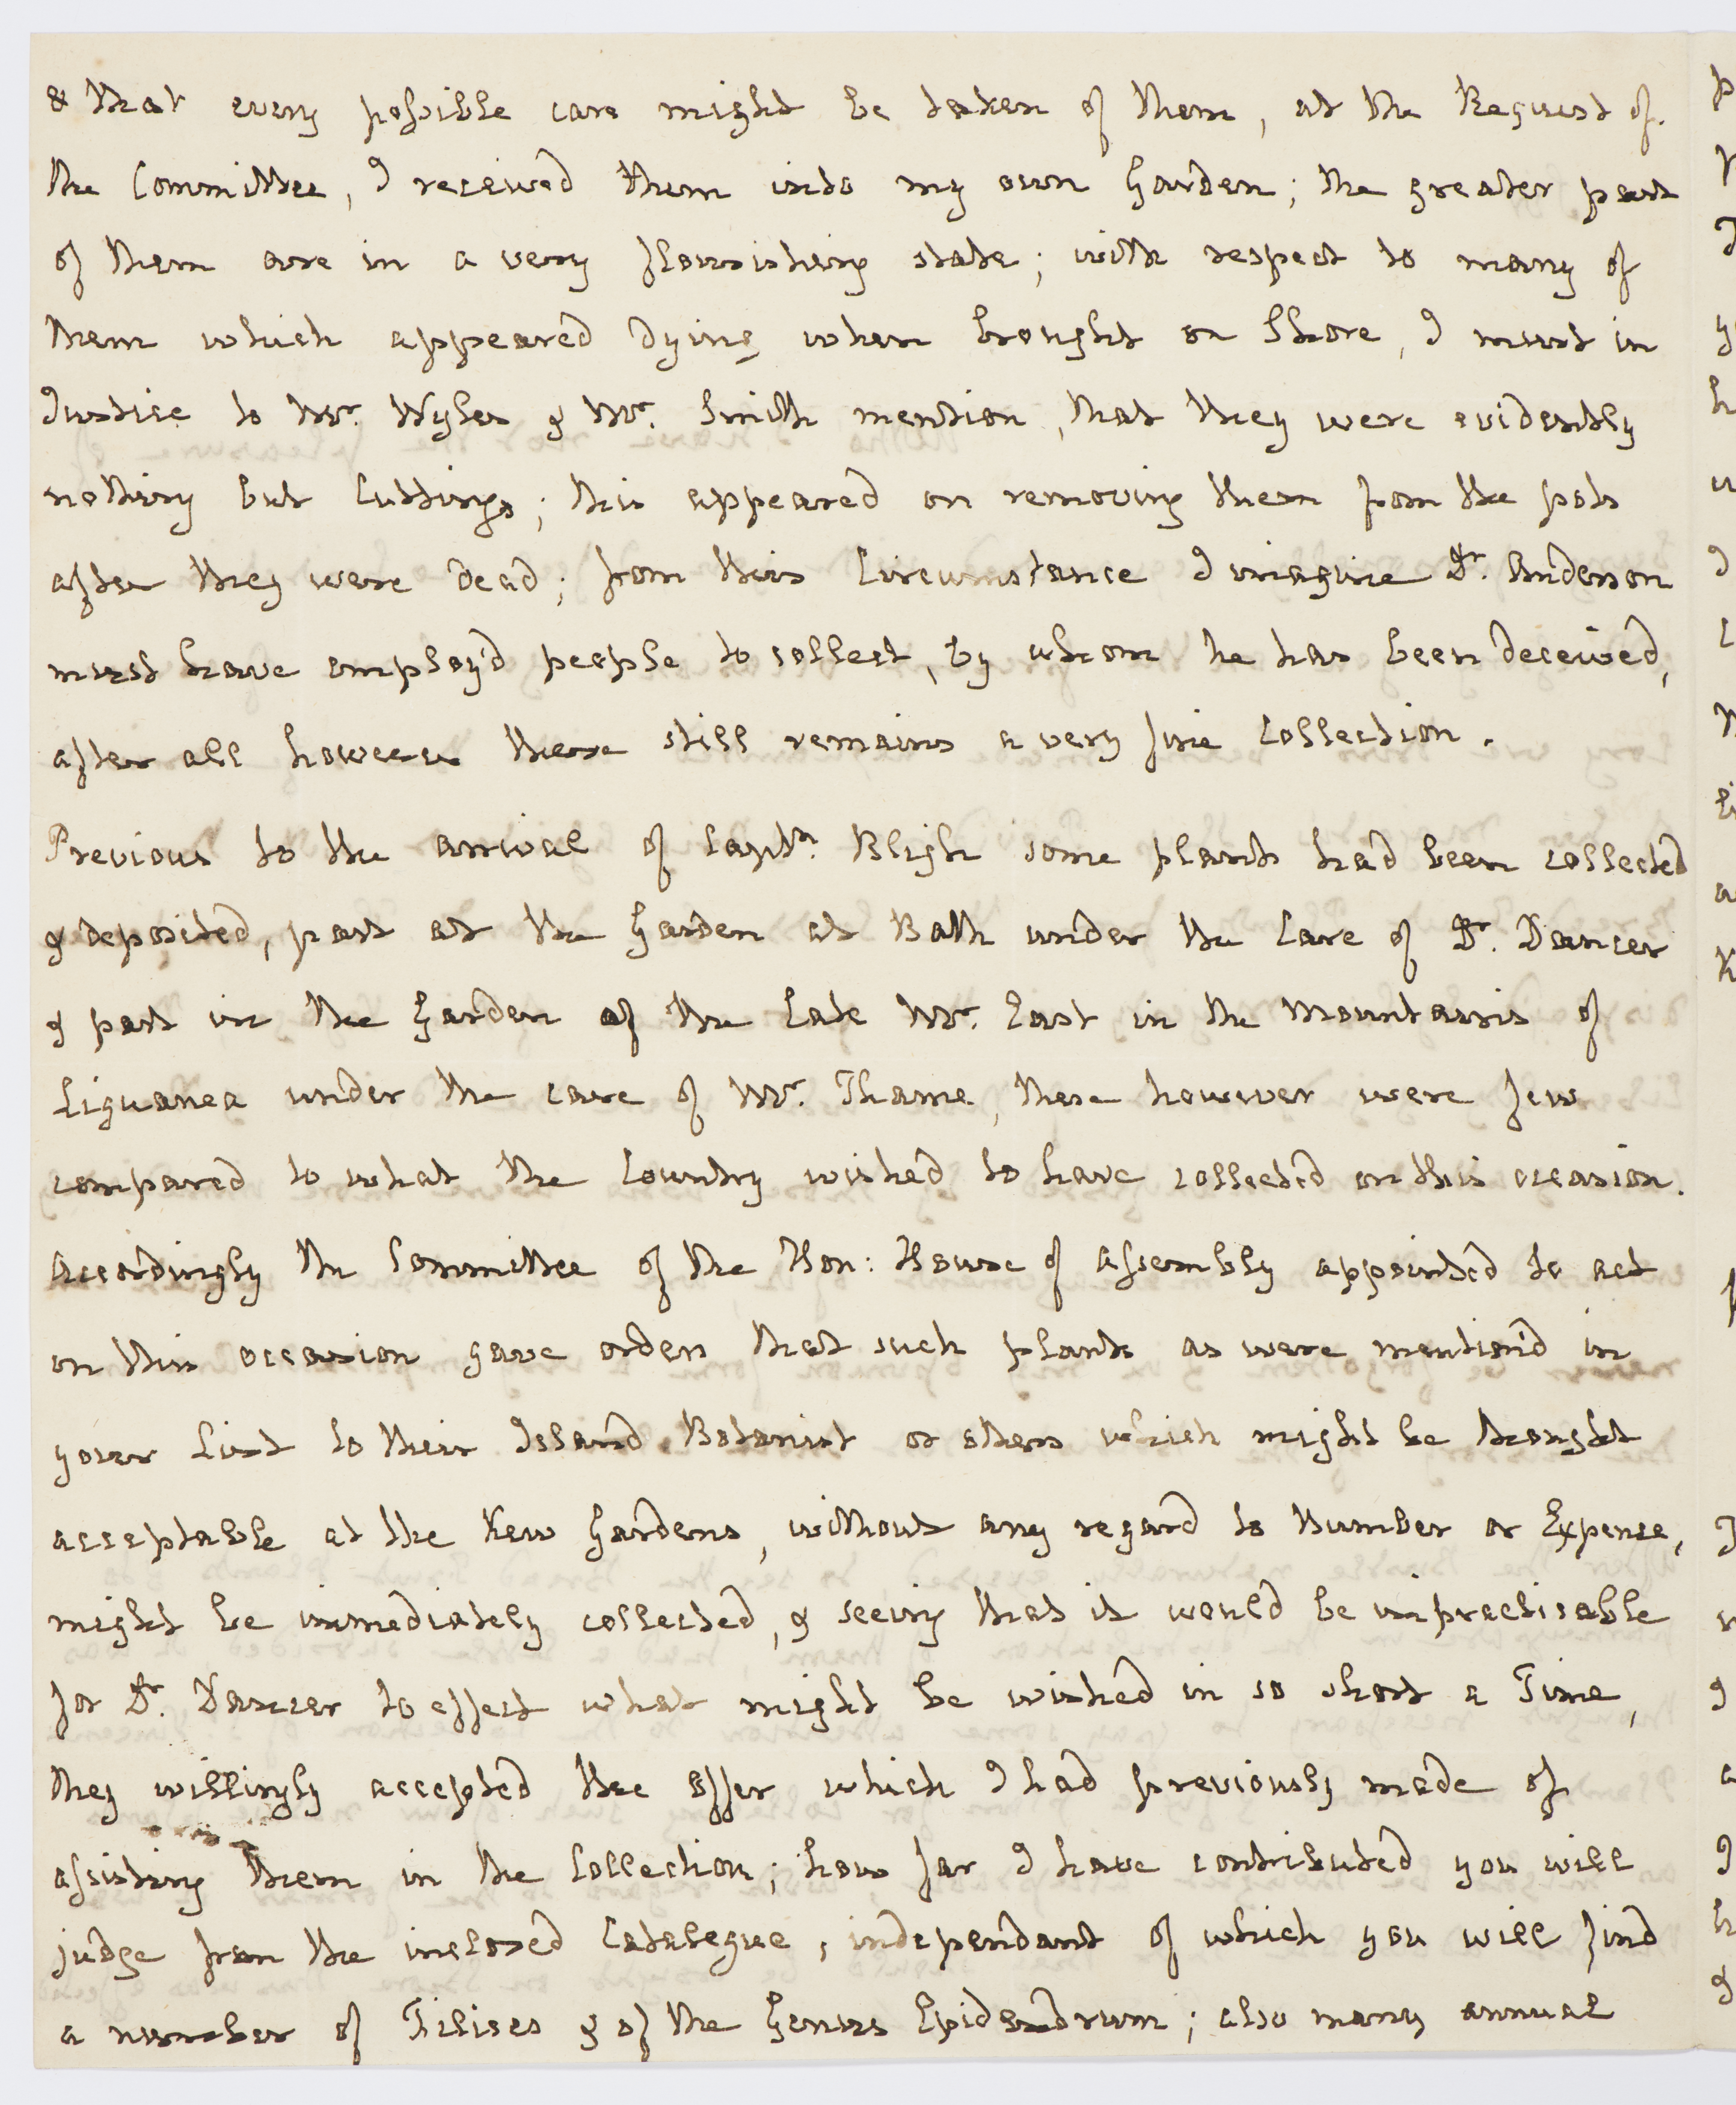 & that every possible care might be taken of them, at the Request of
the Committee, I received them into my own Garden; the greater part
of them are in a very flourishing state; with respect to many of
them which appeared dying when brought on Shore, I must in
Justice to Mr. Wyles & Mr. Smith mention, that they were evidently
nothing but Cuttings; this appeared on removing them from the pots
after they were dead; from this Circumstance I imagine Dr. Anderson
must have employ'd people to collect, by whom he has been deceived,
after all however there still remains a very fine Collection.
Previous to the arrival of Captn. Bligh some plants had been collected
& deposited, part at the Garden at Bath under the Care of Dr. Dancer
& part in the Garden of the Late Mr. East in the Mountains of
Liguanea under the care of Mr. Thame, these however were few
compared to what the Country wished to have collected on this occasion.
Accordingly the Committee of the Hon: House of Assembly appointed to act
on this occasion gave orders that such plants as were mention'd in
your List to their Island Botanist or others which might be thought
acceptable at the Kew Gardens, without any regard to Number or Expense,
might be immediately collected, & seeing that it would be impracticable
for Dr. Dancer to effect what might be wished in so short a Time,
they willingly accepted the offer which I had previously made of
assisting them in the Collection; how far I have contributed you will
judge from the inclosed Catalogue, independant of which you will find
a number of Filises & of the Genus Epidendrum; also many annual